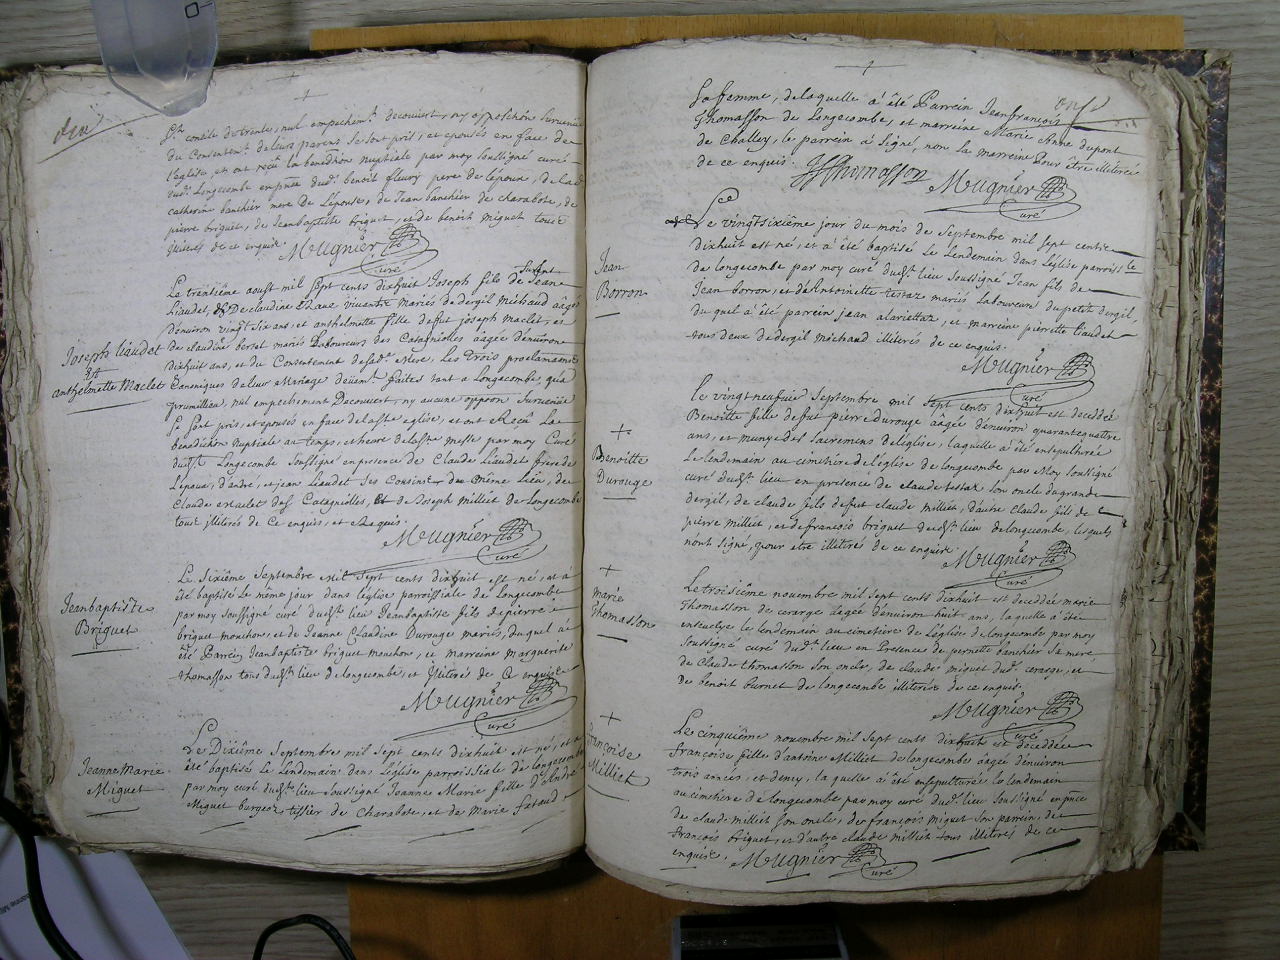 dix
St concile de trente, nul empechemt decouvert, ny oppo͠on survenüe
du Consentemt de leurs parens se sont pris, et epousés en face de
l'eglise, et ont reçu la benediction nuptiale par moy soussigné curé
dudt Longecombe en pñce dudt benoit fleury pere de l'epoux, de lad
catherine banchier mere de l'epouse, de Jean banchier de charabote, de
pierre briguet, de Jeanbaptiste briguet, et de benoit miguet tous
illiterés de ce enquis. Mugnier Curé
Joseph Liaudet
Et
anthelmette Maclet
Le trentiême aoust mil sept cents dixhuit Joseph fils de Jean
Liaudet, & De claudine vivants mariés de dergil mêchaud aagé
d'environ vingt six ans, et anthelmette fille de fut joseph maclet, et
de claudine berset mariés Laboureurs des Catagnolles aâgée d'environ
dixhuit ans, et du Consentement de sad. Mere, les trois proclamations
Canoniques de leur Mariage devamt faites tant a Longecombe, qu'a
prumillieu, nul empechement Decouvert, ny aucune oppo͠on survenüe
se sont pris, et epousés en face de laste eglise, et ont Reçu La
benediction Nuptiale au temps, et heure de laste messe par moy Curé
dudst Longecombe soussigné en presence de Claude Liaudet frere de
l'epoux, d'andré, et jean Liaudet ses Cousins du même Lieu, de
Claude des Catagniolles, et de Joseph milliet de Longecombe
tous illiterés de Ce enquis, et Requis.
Mugnier Curé
Jeanbaptiste
Briguet
Le Sixiême Septembre Mil Sept cents dixhuit est né, et a
été baptisé le même jour dans l'eglise parroissiale de Longecombe
par moy soussigné curé dudst lieu Jeanbaptiste fils de pierre
briguet mouchon, et de Jeanne Claudine Durouge mariés, duquel a
été Parrein Jeanbaptiste briguet mouchon, et marreine marguerite
thomasson tous dudst lieu de longecombe, et illiterés de Ce enquis
Mugnier Curé
Jeanne Marie
Miguet
Le Dixiême Septembre mil Sept cents dixhuit est né, et a
été baptisé Le Lendemain dans L'eglise parroissiale de longecombe
par moy curé dudst lieu soussigné Jeanne Marie fille d'André
Miguet burgoz tissier de Charabote, et de Marie
onze
sa femme, de laquelle à été Parrein Jeanfrançois
Thomasson de Longecombe, et marreine Marie Anne dupont
de Challey, le parrein à Signé, non la marreine Pour être illiterée
de ce enquis. JfThomasson Mugnier Curé
Jean
Borron
Le vingtsixiême jour du mois de Septembre mil sept cents
dixhuit est né, et à été baptisé Le Lendemain dans l'eglise parroissle
de longecombe par moy curé dudst lieu soussigné Jean fils de
Jean borron, et de Antoinette testaz mariés Laboureurs du petit dergil,
duquel à été parrein jean alariettaz, et marreine pierrette liaudet
tous deux de dergil mêchaud illiterés de ce enquis.
Mugnier Curé
Benoitte
Durouge
Le vingtneufviê Septembre mil sept cents dixhuit est decedée
Benoitte fille de fut pierre durouge aagée d'environ quarantequatre
ans, et munye des sacremens de l'eglise, laquelle a été ensepulturée
le lendemain au cimetiêre de l'eglise de longecombe par Moy soussigné
curé dudst lieu en presence de claude testaz son oncle du grand
dergil, de claude fils de fut claude milliet, d'autre claude fils de
pierre milliet, et de francois briguet dudst lieu de longecombe, lesquels
n'ont signé, pour etre illiterés de ce enquis.
Mugnier Curé
marie
Thomasson
Le troisiême novembre mil sept cents dixhuit est decedée marie
Thomasson de corarge aagée d'environ huit ans, laquelle a été
ensevelye le lendemain au cimetiere de L'eglise de longecombe par moy
soussigné curé dudst lieu en Presence de pernette banchier sa mere
de claude thomasson son oncle, de claude miguet dudt corarge, et
de benoit burnet de longecombe illiterés de ce enquis.
Mugnier Curé
françoise
Milliet
Le cinquiême novembre mil sept cents dixhuit est decedée
françoise fille d'antoine Milliet de longecombe aagée d'environ
trois années, et demy, laquelle a été ensepulturée le lendemain
au cimetiere de longecombe par moy curé dudt lieu soussigné en pñce
de claude milliet son oncle, de françois miguet son parrein, de
françois briguet, et d'autre claude milliet tous illiterés de ce
enquis. Mugnier Curé